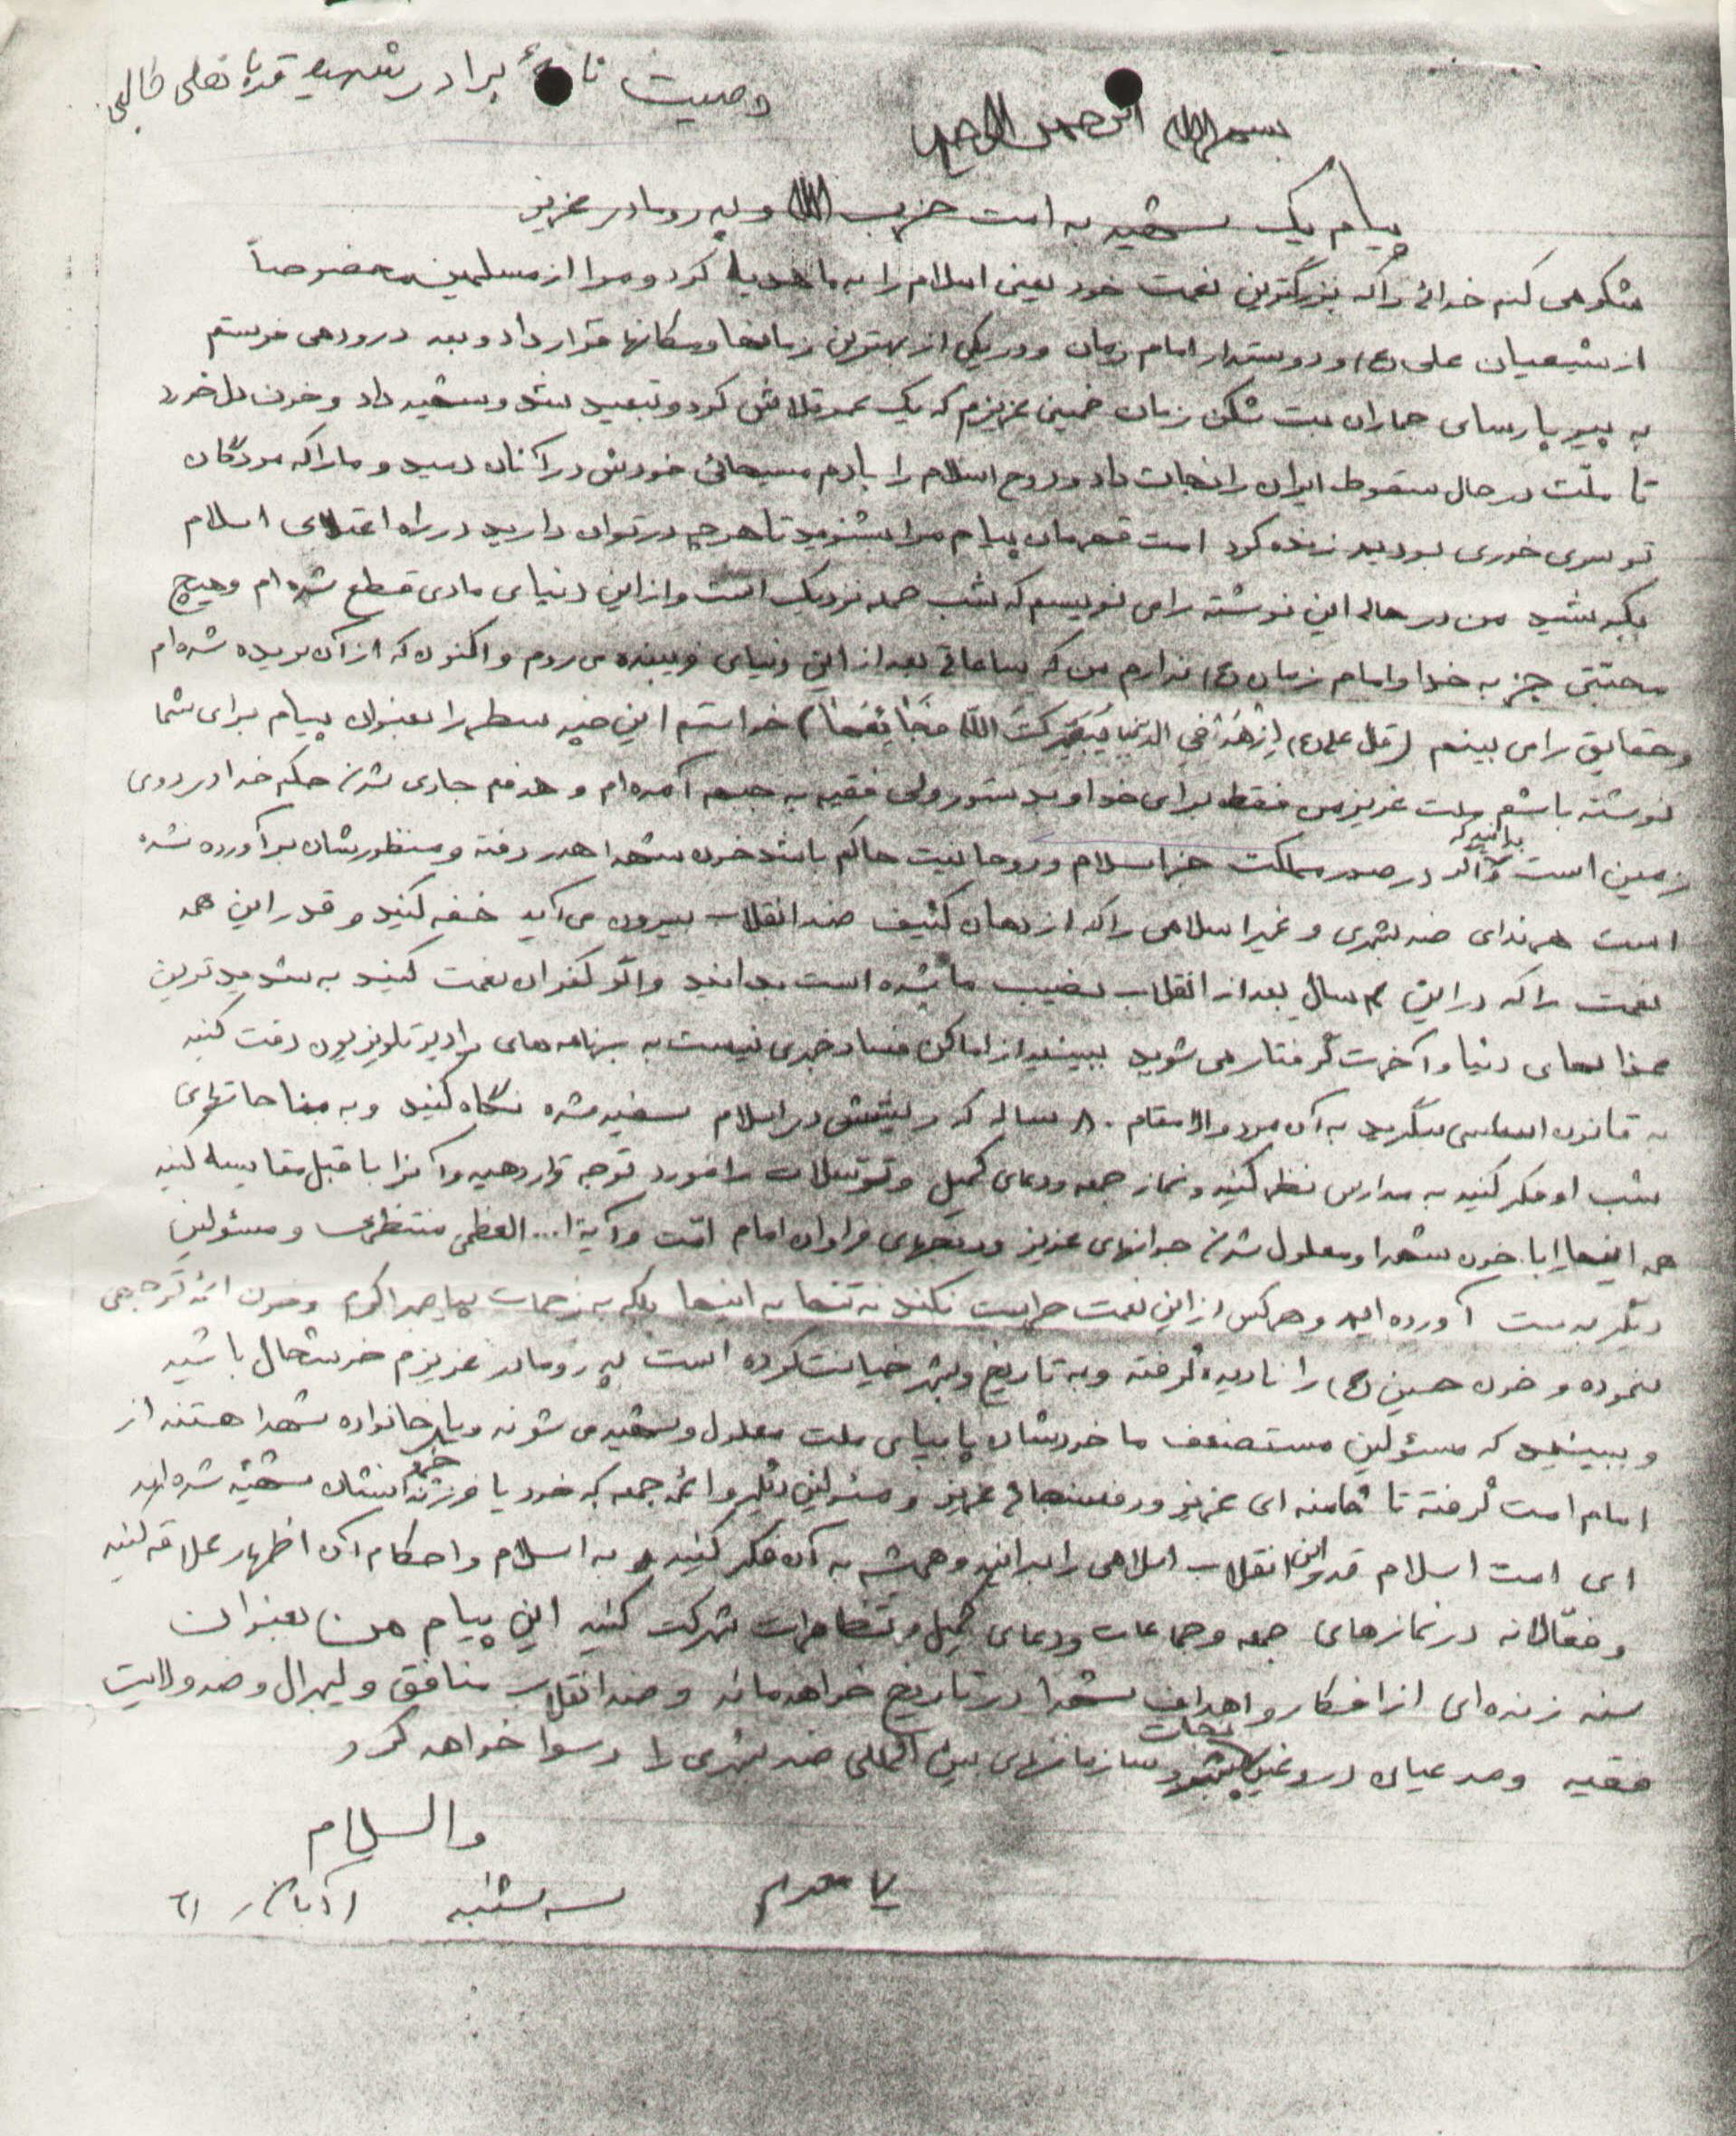 وصیت نامهٔ برادر شهید قربانعلی طالبی
بسم الله الرحمن الرحیم
پیام یک شهید به امت حزب الله و پدر و مادر عزیز
شکر می کنم خدائی را که بزرگترین نعمت خود یعنی اسلام را به ما هدیه کرد و مرا از مسلمین مخصوصاً
از شیعیان علی (ع) و دوستدار امام زمان و در یکی از بهترین زمانها و مکانها قرار داد و بعد درود می فرستم
به پیر پارسای جماران بت شکن زمان خمینی عزیزم که یک عمر تلاش کرد و تبعید شد و شهید داد و خون دل خورد
تا ملت در حال سقوط ایران را نجات داد و روح اسلام را با دم مسیحائی خودش در آنان دمید و ما را که مردگان
تو سری خوری بودیم زنده کرد امت قهرمان پیام مرا بشنوید تا هر چه در توان دارید در راه اعتلای اسلام
بکوشید من در حالی این نوشته را می نویسم که شب حمله نزدیک است و از این دنیای مادی قطع شده ام و هیچ
محبتی جز به خدا و امام زمان (ع) ندارم من که ساعاتی بعد از این دنیای فریبنده می روم و اکنون که از آن بریده شده ام
و حقایق را می بینم (قال علی (ع) اِزْهَدْ فِی الدُّنیا یُبَصِّرْکَ اللهُ) خواستم این چند سطر را بعنوان پیام برای شما
نوشته باشم ملت عزیز من فقط برای خدا و بدستور ولی فقیه به جبهه آمده ام و هدفم جاری شدن حکم خدا در روی
زمین است و اگر در صدر مملکت جز اسلام و روحانیت حاکم باشد خون شهدا هدر رفته و منظورشان برآورده نشده
بدانید که
است هر ندای ضد بشری و غیر اسلامی را که از دهان کثیف ضد انقلاب بیرون می آید خفه کنید و قدر این همه
نعمت را که در این ۴ سال بعد از انقلاب نصیب ما شده است بدانید و اگر کفران نعمت کنید به شدیدترین
عذابهای دنیا و آخرت گرفتار می شوید ببینید از اماکن فساد خبری نیست به برنامه های رادیو تلویزیون دقت کنید
به قانون اساسی بنگرید به آن مرد والا مقام ۸۰ ساله که ریشش در اسلام سفید شده نگاه کنید و به مناجاتهای
شب او فکر کنید به مدارس نظر کنید و نماز جمعه و دعای کمیل و توسلات را مورد توجه قرار دهید و آنرا با قبل مقایسه کنید
همه اینها را با خون شهدا و معلول شدن جوانهای عزیز و رنجهای فراوان امام امت و آیة ا... العظمی منتظری و مسئولین
دیگر بدست آورده ایم و هر کس از این نعمت حراست نکند نه تنها به اینها بلکه به زحمات پیامبر اکرم و خون ائمه توجهی
ننموده و خون حسین (ع) را نادیده گرفته و به تاریخ و بشر خیانت کرده است پدر و مادر عزیزم خوشحال باشید
و ببینید که مسئولین مستضعف ما خودشان پا بپای ملت معلول و شهید می شوند و یا از خانواده شهدا هستند از
امام امت گرفته تا خامنه ای عزیز و رفسنجانی عزیز و مسئولین دیگر و ائمه جمعه که خود یا فرزندانشان شهید شده اند
ای امت اسلام قدر این انقلاب اسلامی را بدانید و همیشه به آن فکر کنید و به اسلام و احکام آن اظهار علاقه کنید
و فعالانه در نمازهای جمعه و جماعات و دعای کمیل و تظاهرات شرکت کنید این پیام من بعنوان
سند زنده ای از افکار و اهداف شهدا در تاریخ خواهد ماند و ضد انقلاب منافق و لیبرال و ضد ولایت
فقیه و مدعیان دروغین نجات بشر و سازمانهای بین المللی ضد بشری را رسوا خواهد کرد
والسلام
یا مهدی سه شنبه آبان ۶۱